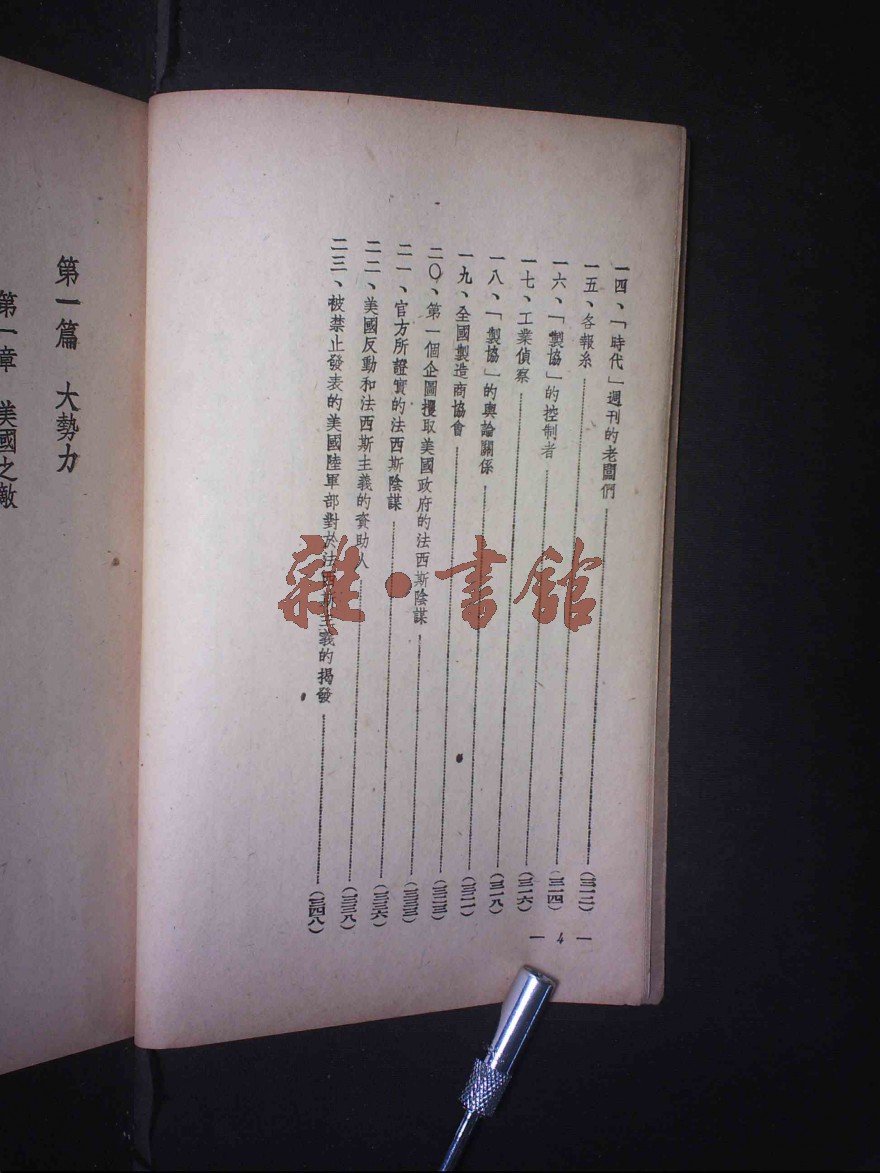 一四、「時代」週刊的老闆們……(三一二)
一五、各報糸……(三一四)
一六、「製協」的控制者……(三一六)
一七、工業偵察……(三一八)
一八、「製協」的輿論關係……(三二一)
一九、全國製造商協會……(三二三)
二〇、第一個企圖攫取美國政府的法西斯陰謀……(三三三)
二一、官方所證實的法西斯陰謀……(三三六)
二二、美國反動和法西斯主義的資助人……(三三八)
二三、被禁止發表的美國陸軍部對於法西斯主義的揭發……(三四八)
— 4 —
第一篇 大勢力
第一章 美國之敵
雜·書館